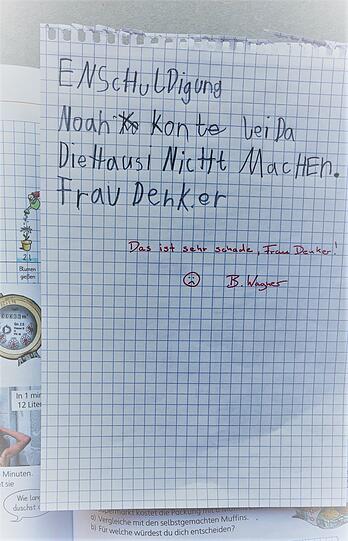 ENSCHULDigung
Noah konte leiDa
DieHausi NicHt MacHEn.
Frau Denk.er
Das ist sehr schade, Frau Denker!
B. Wagner
2 L
Blumen
gießen
In 1 min
12 Liter
Minuten.
st sie
Wie lan
duschst d
permarkt kostet die Packung mit
a) Vergleiche mit den selbstgemachten Muffins.
b) Für welche würdest du dich entscheiden?